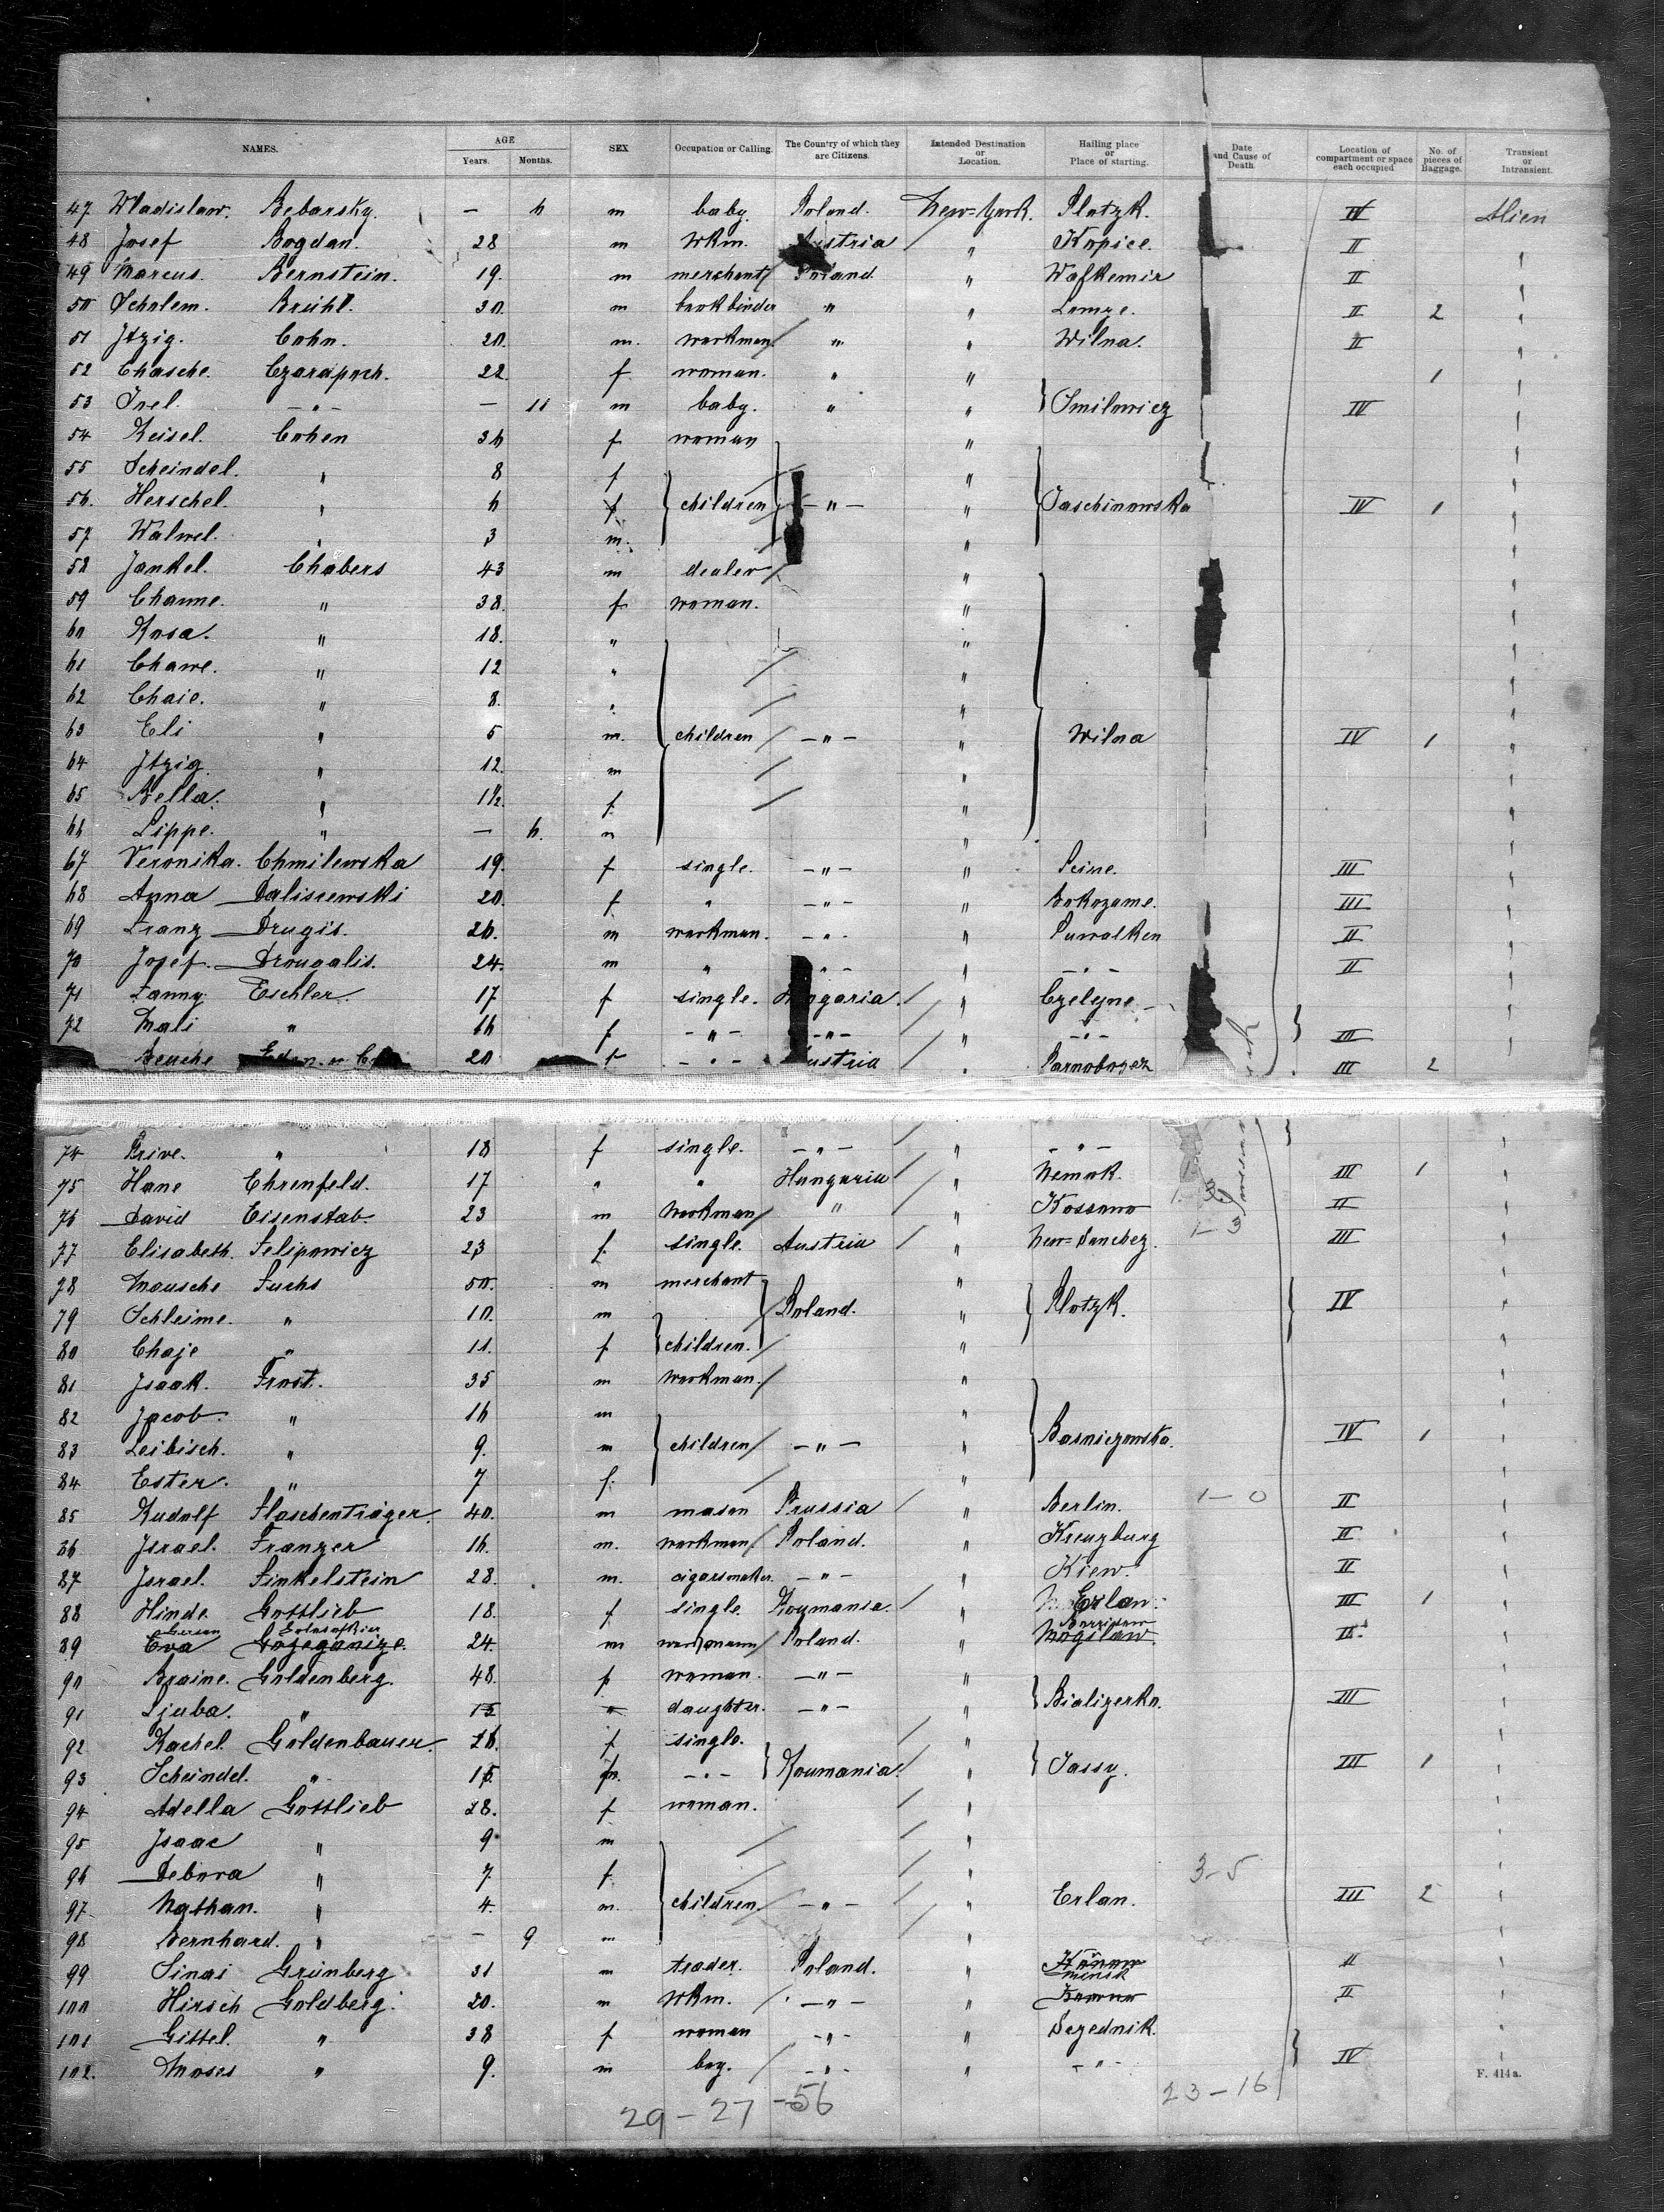 NAMES. AGE Years. Months. SEX Occupation or Calling. The Country of which they are Citizens. Intended Destination or Location. Hailing place or Place of starting. Date and Cause of Death Location of compartment or space each occupied No. of pieces of Baggage. Transient or Intransient.
47 Wladislaw. Bebarsky. — 6 m baby. Poland. New-York. Plotzk. IV Alien
48 Josef Bogdan. 28 m Wkm. Austria " Kopice. II "
49 Marcus. Bernstein. 19. m merchant Poland " Wolkemir II "
50 Scholem. Brühl. 30. m bookbinder " " Lomze. II 2 "
51 Itzig. Cohn. 20. m. workman " " Wilna. II "
52 Chasche. Czarapoch. 22. f woman. " " 1 "
53 Irel. —"— — 11 m baby. " " Smilowicz IV "
54 Reisel. Cohen 36 f woman " "
55 Scheindel. " 8 f " "
56. Herschel. " 6 f children —"— " Jaschinowska IV 1 "
57 Walwel. " 3 m. " "
58 Jankel. Chabers 43 m dealer " "
59 Channe. " 38. f woman. " "
60 Rosa. " 18. " " "
61 Chawe. " 12 " " "
62 Chaie. " 8. " " "
63 Eli " 5 m. children —"— " Wilna IV 1 "
64 Itzig. " 12. m " "
65 Bella. " 1½. f. " "
66 Lippe. " — 6. m " "
67 Veronika. Chmilewska 19. f single. —"— " Seine. III "
68 Anna Daliscewski 20. f " —"— " III "
69 Franz Drugis. 26. m workman. —"— " Suwalken II "
70 Josef. Drougalis. 24. m " —"— " —"— II "
71 Fanny. Eschler. 17 f single. Hungaria. " Czelejne "
72 Mali " 16 f —"— —"— " —"— III "
Beuche 20 f —"— Austria " III 2
74 Brive. " 18 f single. —"— " —"— "
75 Hane Ehrenfeld. 17 " " Hungaria " Nemok. III 1 "
76 David Eisenstab. 23 m Workman " " Kossowo II "
77 Elisabeth. Felipowicz 23 f. single. Austria " New-Sandez. III "
78 Mousche Fuchs 50. m merchant " "
79 Schleime. " 10. m Poland. " Plotzk. IV "
80 Chaje " 11. f children. " "
81 Isaak. Frost. 35 m Workman. " "
82 Jacob. " 16 m " "
83 Leibisch. " 9. m children —"— " Basniczowska. IV 1 "
84 Ester. " 7 f. " "
85 Rudolf Flaschenträger. 40. m mason Prussia " Berlin. 1–0 II "
86 Israel. Franzer 16. m. workman Poland. " Kreuzburg II "
87 Israel. Finkelstein 28. m. cigarsmaker. —"— " Kiew. II "
88 Hinde. Gottlieb 18. f single. Roumania. " Erlan. III 1 "
89 Eva 24. m workmann Poland. " Mogilaw. II "
90 Braine. Goldenberg. 48. f woman. —"— " "
91 Ljuba. " 15 " daughter. —"— " Bializerka. III "
92 Rachel. Goldenbauer. f single. " "
93 Scheindel. " —"— Roumania. " Jassy. III 1 "
94 Adella Gottlieb 28. f woman. " "
95 Isaac " 9 m " "
96 Debora " 7. f. " 3–5 "
97 Nathan. " 4. m. children. —"— " Erlan. III 2 "
98 Bernhard. " — 9 m " "
99 Sinai Grünberg 31 m trader. Poland. " II "
100 Hirsch Goldberg. 20. m Wkm. —"— " Minsk II "
101 Gittel. " 38 f woman —"— " Dezednik. "
102. Moses " 9. m boy. —"— " —"— IV "
F. 414a.
29 – 27 – 56 23 – 16